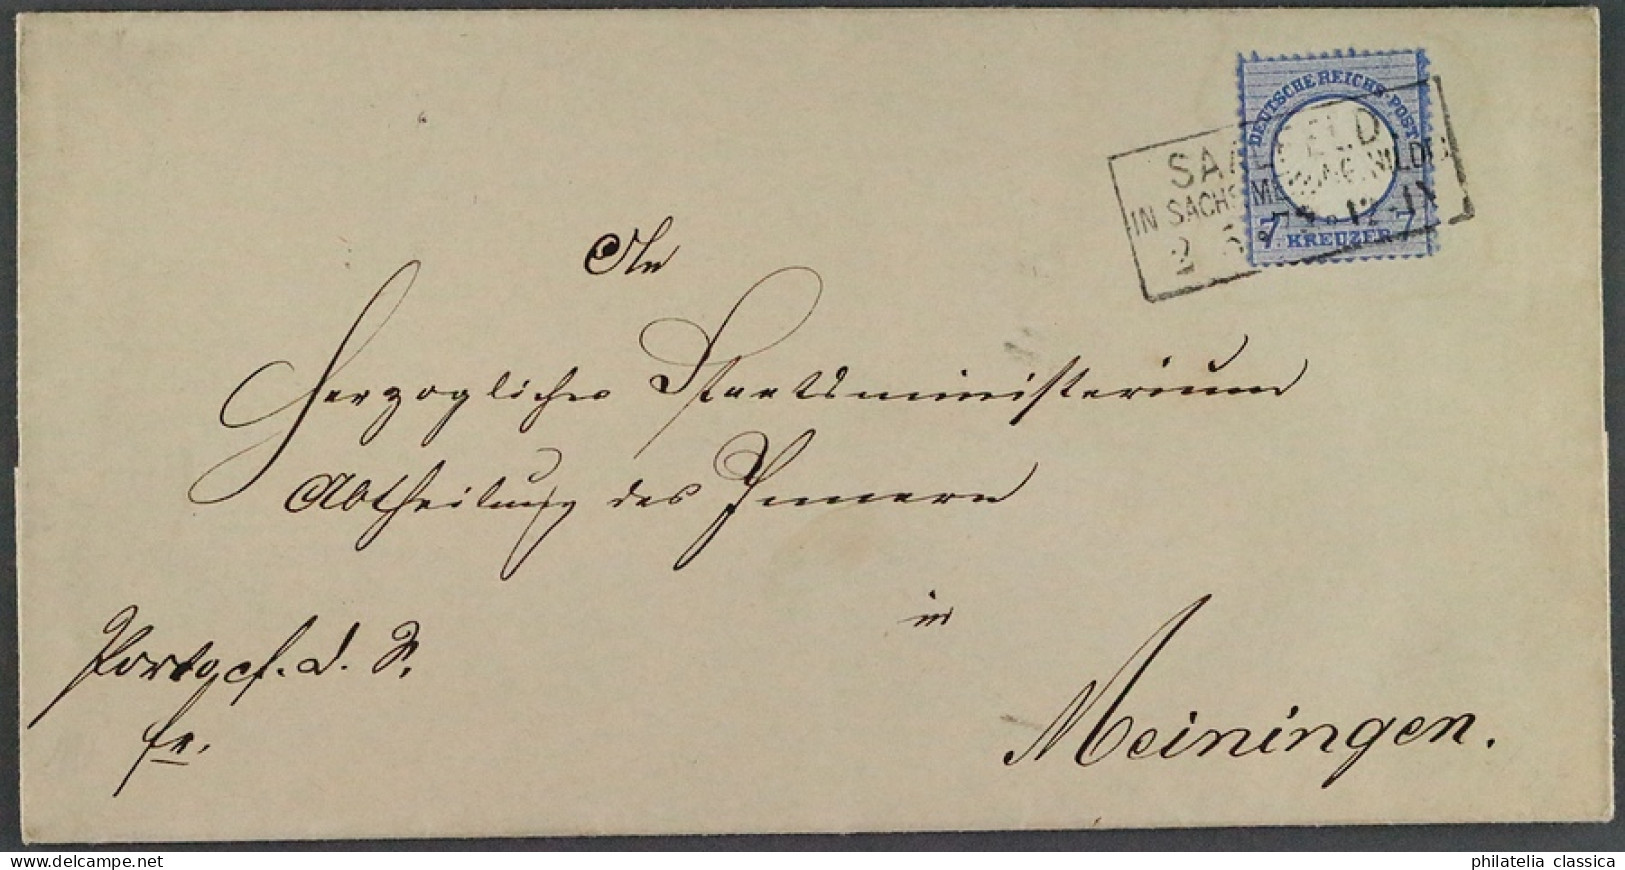 DEUTSCHE REICHS-POST
SAALFELD
IN SACHS. MEININGEN
7 7
KREUZER
An
Herzogliches Staatsministerium
Abtheilung des Innern
in
Meiningen.
Portopf. d. S.
fr.
www.delcampe.net
philatelia classica